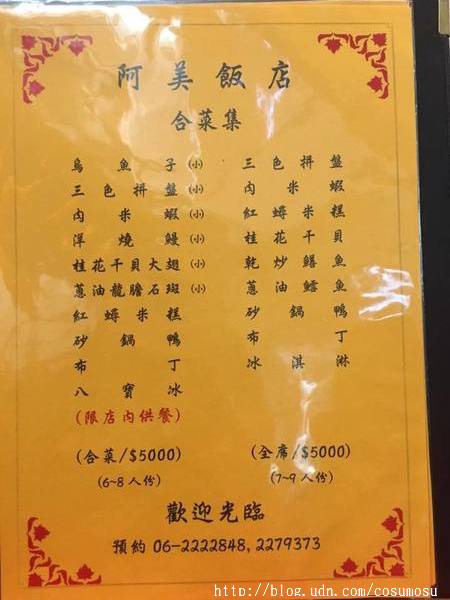 阿美飯店
合菜集
烏魚子(小)
三色拼盤(小)
肉米蝦(小)
洋燒鰻(小)
桂花干貝大翅(小)
蔥油龍膽石斑(小)
紅蟳米糕
砂鍋鴨
布丁
八寶冰
(限店內供餐)
(合菜/$5000)
(6~8人份)
三色拼盤
肉米蝦
紅蟳米糕
桂花干貝
乾炒鱔魚
蔥油鱈魚
砂鍋鴨
布丁
冰淇淋
(全席/$5000)
(7~9人份)
歡迎光臨
預約 06-2222848, 2279373
http://blog.udn.com/cosumosu